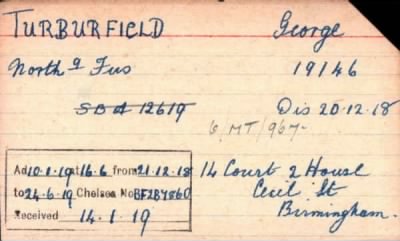 TURBURFIELD George
North'd Fus 19/46
SBA 12619 Dis 20.12.18
6/MT/967-
Ad 10.1.19 at 16.6 from 21.12.18
to 24.6.19 Chelsea No BF2B4860
Received 14.1.19
14 Court 2 House
Cecil St
Birmingham.